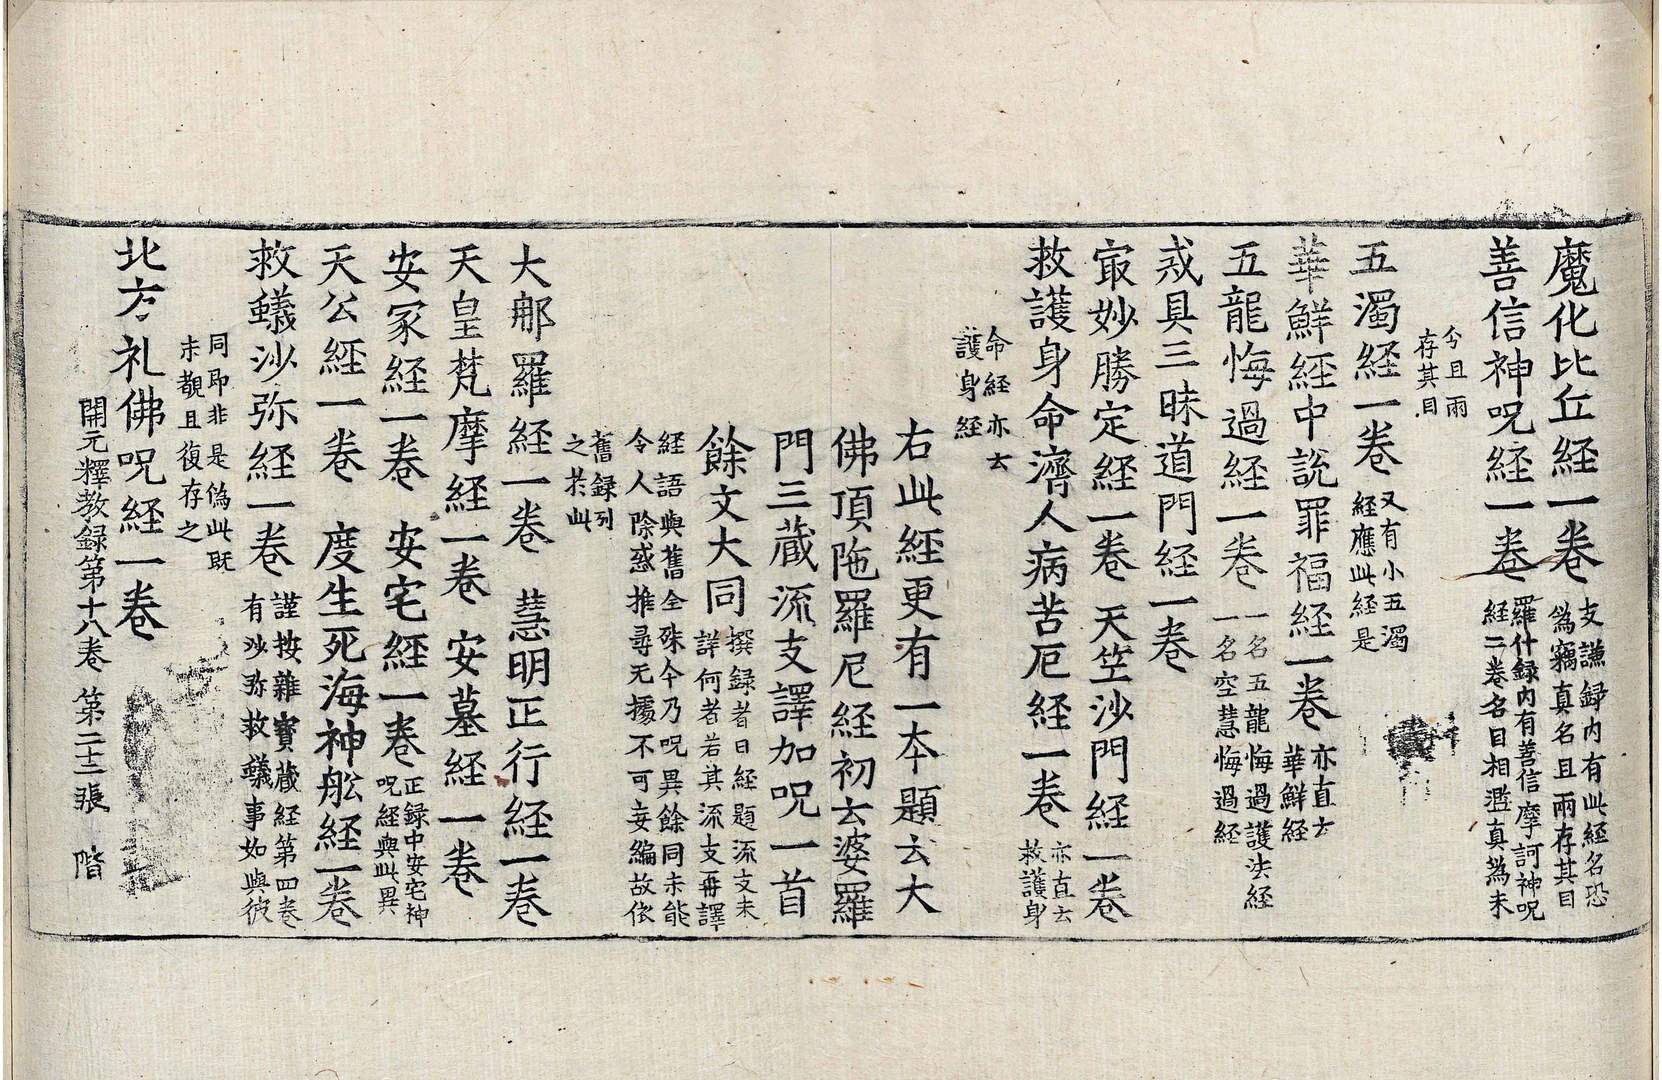 魔化比丘経一卷 支謙録内有此経名恐為竊真名且兩存其目
善信神呪経一卷 羅什録内有善信摩訶神呪経二卷名目相濫真偽未
兮且兩存其目
五濁経一卷 又有小五濁経應此経是
華鮮経中説罪福経一卷 亦直云華鮮経
五龍悔過経一卷 一名五龍悔過護法経一名空慧悔過経
戒具三昧道門経一卷
冣妙勝定経一卷 天竺沙門経一卷
救護身命濟人病苦厄経一卷 亦直云救護身
命経亦云護身経
右此経更有一本題云大
佛頂陁羅尼経初云婆羅
門三藏流支譯加呪一首
餘文大同 撰録者曰経題流支未詳何者若其流支再譯
経語與舊全殊今乃呪異餘同未能令人除惑推尋无據不可妄編故依
舊録列之於此
大郍羅経一卷 慧明正行経一卷
天皇梵摩経一卷 安墓経一卷
安冢経一卷 安宅経一卷 正録中安宅神呪経與此異
天公経一卷 度生死海神舩経一卷
救蟻沙弥経一卷 謹按雜寶藏経第四卷有沙弥救蟻事如與彼
同即非是偽此既未覩且復存之
北方礼佛呪経一卷
開元釋教録第十八卷 第二十二張 階